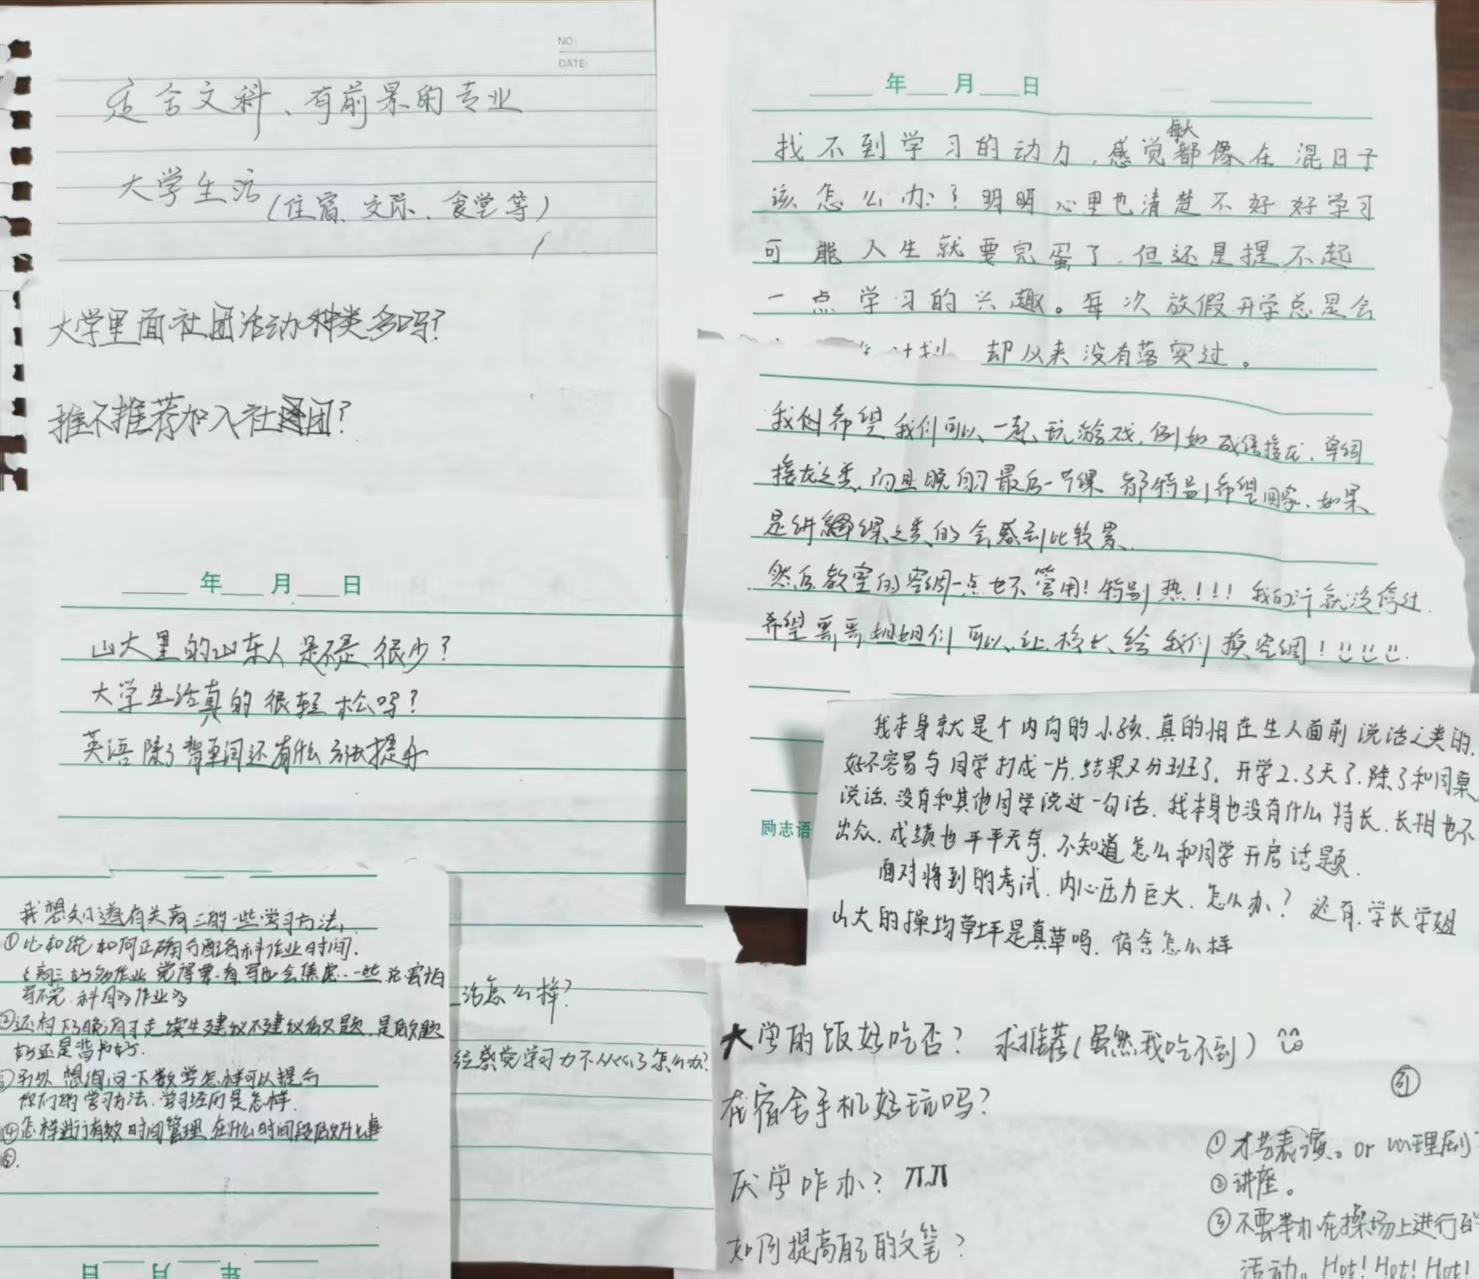 NO:
DATE:
适合文科、有前景的专业
大学生活(住宿、交际、食堂等)
大学里面社团活动种类多吗?
推不推荐加入社团?
年 月 日
山大里的山东人是不是很少?
大学生活真的很轻松吗?
英语除了背单词还有什么方法提升
我想知道有关高三的一些学习方法,
①比如说如何正确分配各科作业时间.
写不完,科目多作业多
好还是背书好.
③另外想询问一下数学怎样可以提高
你们的学习方法.学习经历是怎样.
④怎样进行有效时间管理,在什么时间段做什么事
⑤.
年 月 日
活怎么样?
感觉学习力不从心了怎么办?
年 月 日
找不到学习的动力,感觉每天都像在混日子
该怎么办?明明心里也清楚不好好学习
可能人生就要完蛋了,但还是提不起
一点学习的兴趣。每次放假开学总是会
计划,却从来没有落实过。
我们希望我们可以一起玩游戏,例如成语接龙,单词
接龙之类,而且晚自习最后一节课都特别希望回家,如果
是讲课之类的会感到比较累.
然后教室的空调一点也不管用!特别热!!!我的汗就没停过.
希望哥哥姐姐们可以让校长给我们换空调!
励志语
我本身就是个内向的小孩,真的怕在生人面前说话之类的,
好不容易与同学打成一片,结果又分班了,开学2.3天了,除了和同桌
说话,没有和其他同学说过一句话,我本身也没有什么特长,长相也不
出众,成绩也平平无奇,不知道怎么和同学开启话题.
面对将到的考试,内心压力巨大,怎么办?还有,学长学姐
山大的操场草坪是真草吗,宿舍怎么样
大学的饭好吃否?求推荐(虽然我吃不到)
在宿舍手机好玩吗?
厌学咋办?
如何提高自己的文笔?
①才艺表演。or 心理剧
②讲座。
③不要举办在操场上进行的
活动。Hot!Hot!Hot!